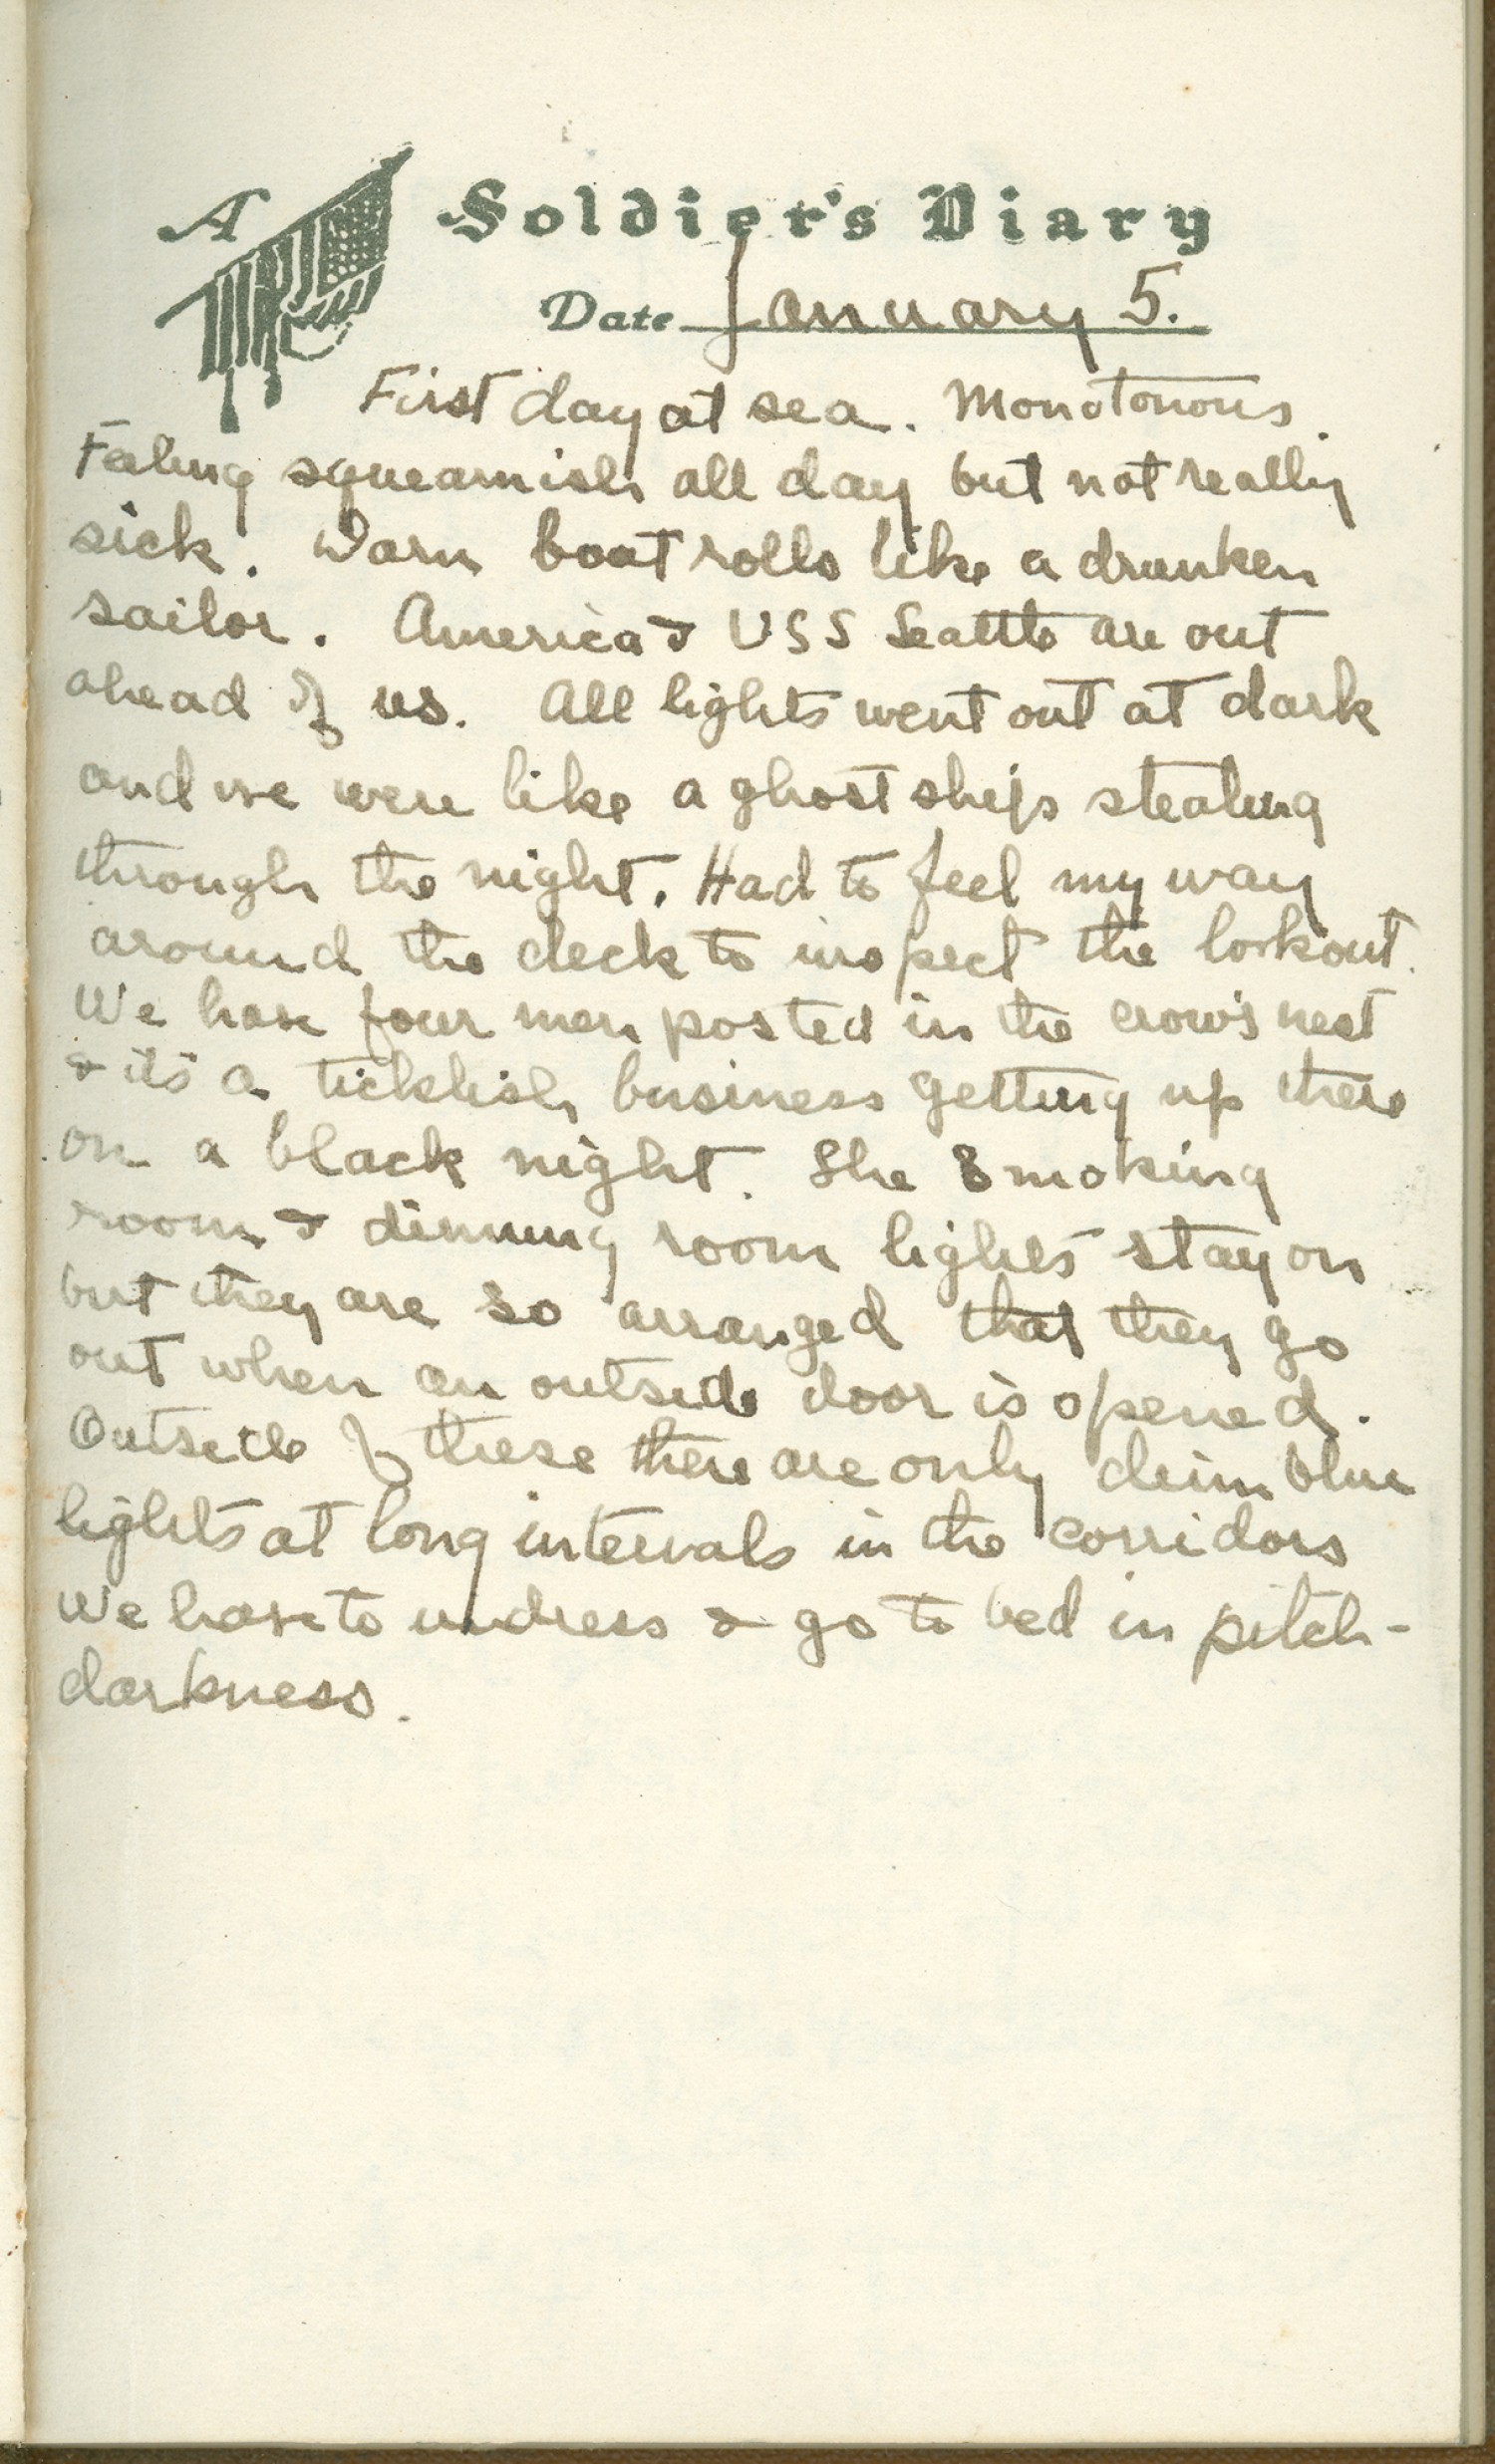 A Soldier's Diary
Date January 5.
First day at sea. Monotonous.
Feeling squeamish all day but not really
sick. Darn boat rolls like a drunken
sailor. America & USS Seattle are out
ahead of us. All lights went out at dark
and we were like a ghost ship stealing
through the night. Had to feel my way
around the deck to inspect the lookout.
We have four men posted in the crow's nest
& it's a ticklish business getting up there
on a black night. The Smoking
room & dinning room lights stay on
but they are so arranged that they go
out when an outside door is opened.
Outside of these there are only dim blue
lights at long intervals in the corridors
We have to undress & go to bed in pitch-
darkness.